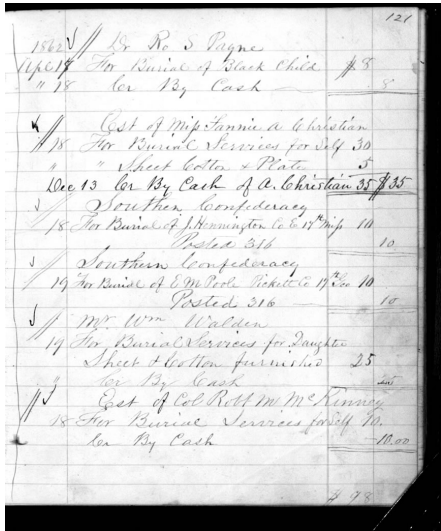 121
1862 Dr Ro S Payne
Apl 17 For Burial of Black Child $8
" 18 Cr By Cash 8
Est of Miss Fannie A Christian
18 For Burial Services for Self 30
" " Sheet Cotton & Plate 5
Dec 13 Cr By Cash of A. Christian 35 $35
Southern Confederacy
18 For Burial of J. Hennington Co E 17th Miss 10
Posted 316 10
Southern Confederacy
19 For Burial of E M Poole Pickett Co 17th Geo 10
Posted 316 10
Mr Wm Walden
19 For Burial Services for Daughter
Sheet & Cotton furnished 25
Cr By Cash
Est of Col Robt M McKinney
18 For Burial Services for Self 10.
Cr By Cash 10.00
$ 98